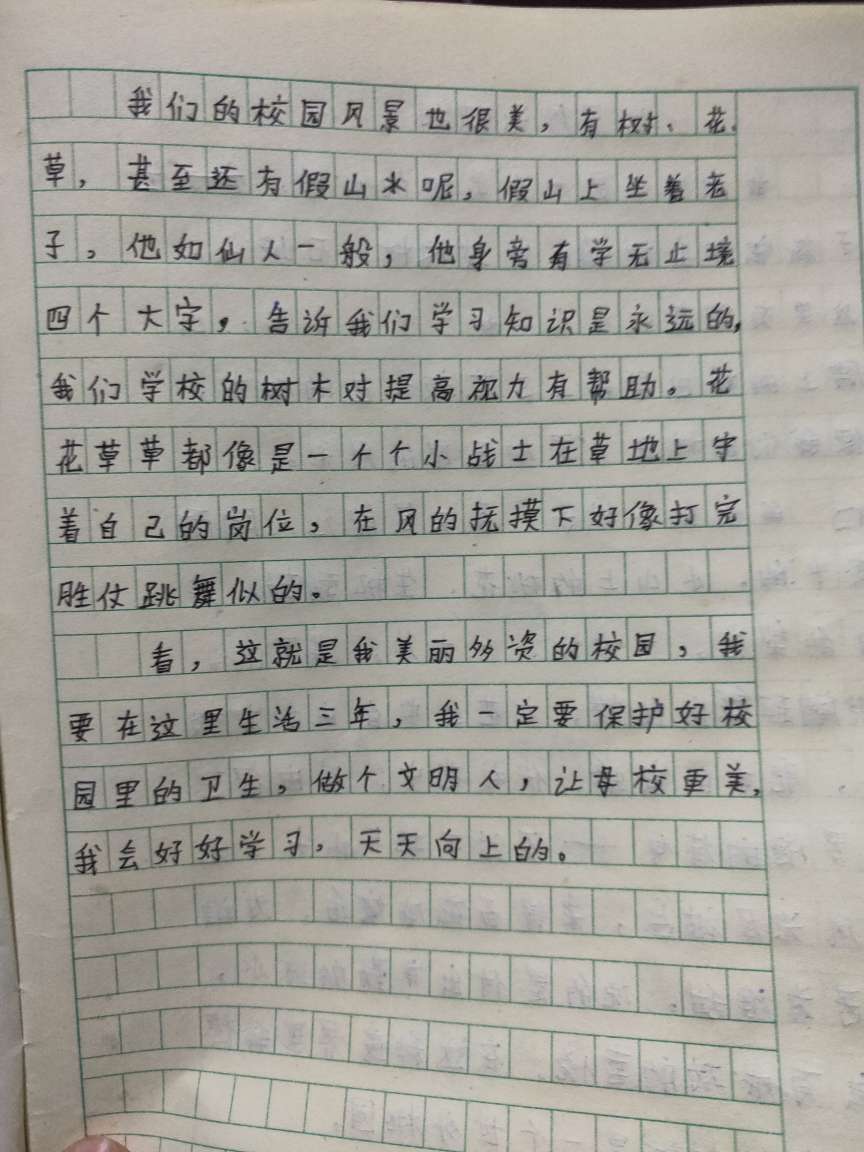 我们的校园风景也很美，有树、花、
草，甚至还有假山水呢，假山上坐着老
子，他如仙人一般，他身旁有学无止境
四个大字，告诉我们学习知识是永远的，
我们学校的树木对提高视力有帮助。花
花草草都像是一个个小战士在草地上守
着自己的岗位，在风的抚摸下好像打完
胜仗跳舞似的。
看，这就是我美丽多资的校园，我
要在这里生活三年，我一定要保护好校
园里的卫生，做个文明人，让母校更美，
我会好好学习，天天向上的。